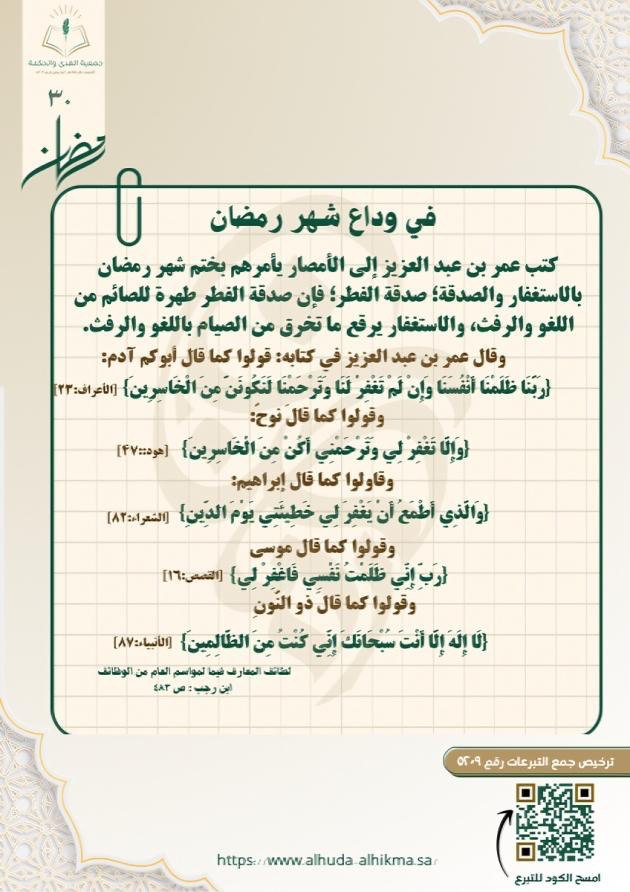 جمعية الهدى والحكمة
٣٠
رمضان
في وداع شهر رمضان
كتب عمر بن عبد العزيز إلى الأمصار يأمرهم بختم شهر رمضان
بالاستغفار والصدقة؛ صدقة الفطر؛ فإن صدقة الفطر طهرة للصائم من
اللغو والرفث، والاستغفار يرقع ما تخرق من الصيام باللغو والرفث.
وقال عمر بن عبد العزيز في كتابه: قولوا كما قال أبوكم آدم:
{رَبَّنَا ظَلَمْنَا أَنْفُسَنَا وَإِنْ لَمْ تَغْفِرْ لَنَا وَتَرْحَمْنَا لَنَكُونَنَّ مِنَ الْخَاسِرِينَ} [الأعراف:٢٣]
وقولوا كما قال نوحٌ:
{وَإِلَّا تَغْفِرْ لِي وَتَرْحَمْنِي أَكُنْ مِنَ الْخَاسِرِينَ} [هود::٤٧]
وقاولوا كما قال إبراهيم:
{وَالَّذِي أَطْمَعُ أَنْ يَغْفِرَ لِي خَطِيئَتِي يَوْمَ الدِّينِ} [الشعراء:٨٢]
وقولوا كما قال موسى
{رَبِّ إِنِّي ظَلَمْتُ نَفْسِي فَاغْفِرْ لِي} [القصص:١٦]
وقولوا كما قال ذو النّونِ
{لَا إِلَهَ إِلَّا أَنْتَ سُبْحَانَكَ إِنِّي كُنْتُ مِنَ الظَّالِمِينَ} [الأنبياء:٨٧]
لطائف المعارف فيما لمواسم العام من الوظائف
ابن رجب : ص ٤٨٣
ترخيص جمع التبرعات رقم ٥٢٠٩
https://www.alhuda.alhikma.sa/
امسح الكود للتبرع